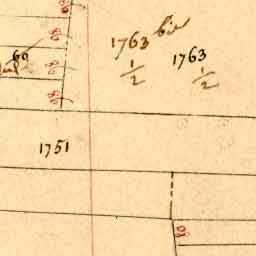 80
80
60
80
80
1763 bis
1/2
1763
1/2
1751
80